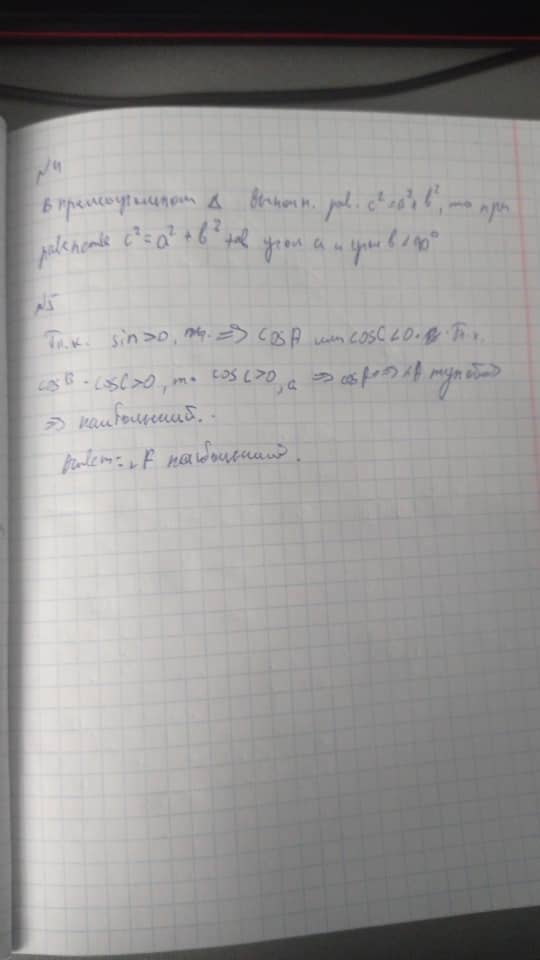 №4
в прямоугольном Δ выполн. рав. c² = a² + b², то при
равенстве c² = a² + b² + d угол a и угол b < 90°
№5
Т.к. sin>0, ⇒ cosA или cosC<0. Т.к.
cosB · cosC>0, то cosC>0, a ⇒ тупой
⇒ наибольший.
Ответ: наибольший.